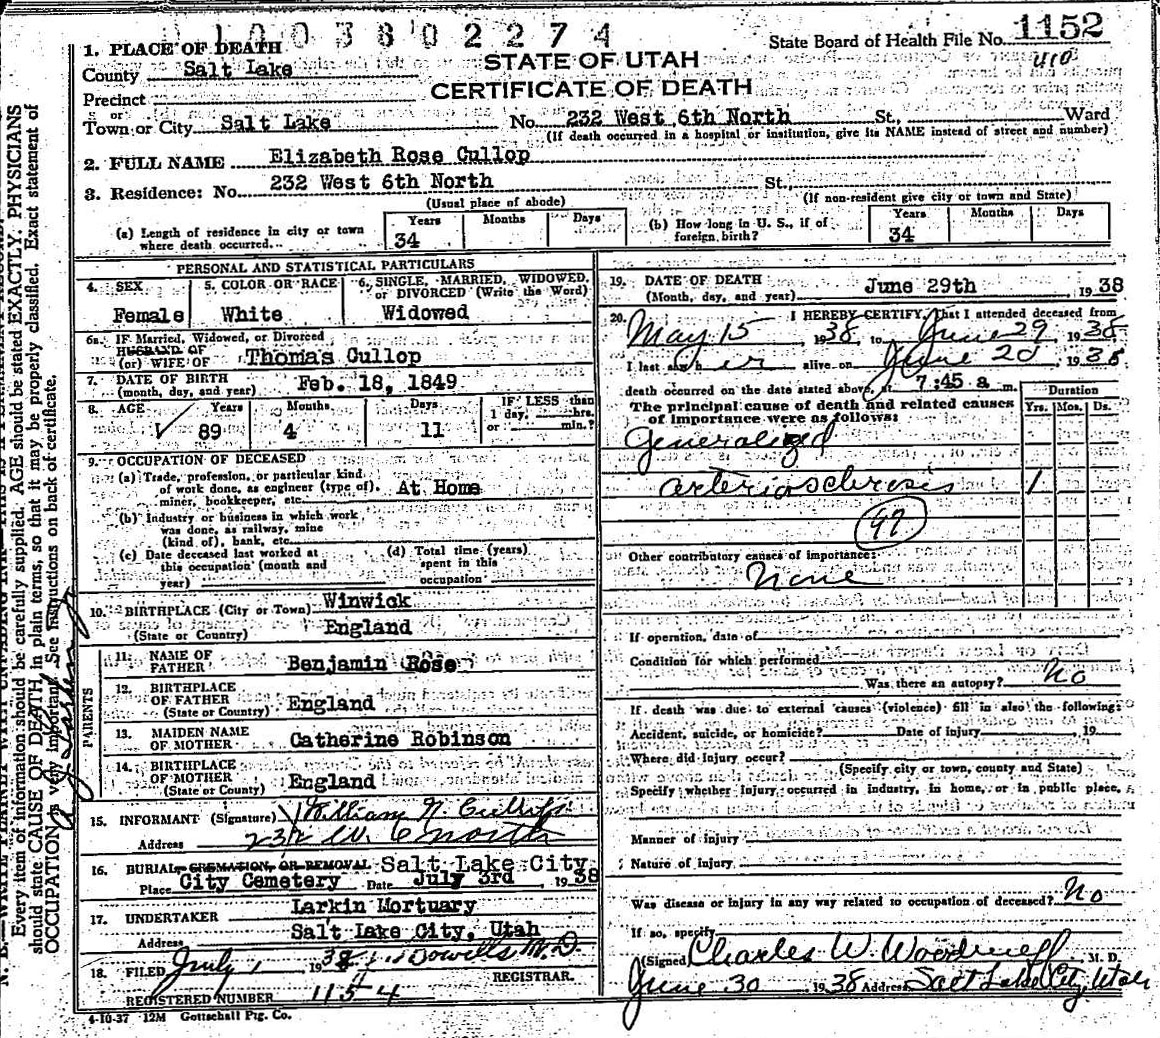 1003802274
State Board of Health File No. 1152
410
1. PLACE OF DEATH
STATE OF UTAH
County Salt Lake
CERTIFICATE OF DEATH
Precinct
or
Town or City Salt Lake No. 232 West 6th North St., Ward
(If death occurred in a hospital or institution, give its NAME instead of street and number)
2. FULL NAME Elizabeth Rose Cullop
3. Residence: No. 232 West 6th North St.,
(Usual place of abode) (If non-resident give city or town and State)
(a) Length of residence in city or town where death occurred... Years 34 Months Days
(b) How long in U. S., if of foreign birth? Years 34 Months Days
PERSONAL AND STATISTICAL PARTICULARS
4. SEX Female
5. COLOR OR RACE White
6. SINGLE, MARRIED, WIDOWED, or DIVORCED (Write the Word) Widowed
6a. If Married, Widowed, or Divorced
HUSBAND OF
(or) WIFE OF Thomas Cullop
7. DATE OF BIRTH
(month, day, and year) Feb. 18, 1849
8. AGE Years 89 Months 4 Days 11 IF LESS than 1 day, hrs. or min.?
9. OCCUPATION OF DECEASED
(a) Trade, profession, or particular kind
of work done, as engineer (type of), At Home
miner, bookkeeper, etc.
(b) Industry or business in which work
was done, as railway, mine
(kind of), bank, etc.
(c) Date deceased last worked at
this occupation (month and
year)
(d) Total time (years)
spent in this
occupation
10. BIRTHPLACE (City or Town) Winwick
(State or Country) England
PARENTS
11. NAME OF FATHER Benjamin Rose
12. BIRTHPLACE OF FATHER
(State or Country) England
13. MAIDEN NAME OF MOTHER Catherine Robinson
14. BIRTHPLACE OF MOTHER
(State or Country) England
15. INFORMANT (Signature) William N. Cullop
Address 232 W. 6 North
16. BURIAL, CREMATION, OR REMOVAL Salt Lake City
Place City Cemetery Date July 3rd, 1938
17. UNDERTAKER Larkin Mortuary
Address Salt Lake City, Utah
18. FILED July 1 1938 M.D.
REGISTRAR.
REGISTERED NUMBER 1154
4-10-37 12M Gottschall Ptg. Co.
19. DATE OF DEATH
(Month, day, and year) June 29th 1938
20. I HEREBY CERTIFY, That I attended deceased from
May 15 1938 to June 29 1938
I last saw her alive on June 28 1938
death occurred on the date stated above, at 7:45 a m.
The principal cause of death and related causes
of importance were as follows:
Duration
Yrs. Mos. Ds.
Generalized
arteriosclerosis 1
97
Other contributory causes of importance:
None
If operation, date of
Condition for which performed
Was there an autopsy? No
If death was due to external causes (violence) fill in also the following:
Accident, suicide, or homicide? Date of injury , 19
Where did injury occur?
(Specify city or town, county and State)
Specify whether injury occurred in industry, in home, or in public place,
Manner of injury
Nature of injury
Was disease or injury in any way related to occupation of deceased? No
If so, specify
(Signed) Charles W. Woodruff M. D.
June 30 1938 Address Salt Lake City, Utah
Every item of information should be carefully supplied. AGE should be stated EXACTLY. PHYSICIANS
should state CAUSE OF DEATH in plain terms, so that it may be properly classified. Exact statement of
OCCUPATION is very important. See instructions on back of certificate.